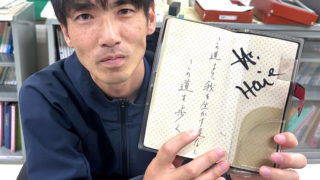 この道より我を生かす道なし
この道を歩く